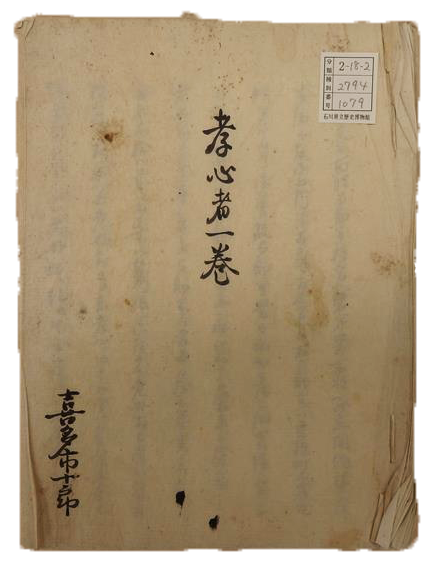 分類種別番号
2-18-2
2794
1079
石川県立歴史博物館
孝心者一巻
喜多市十郎